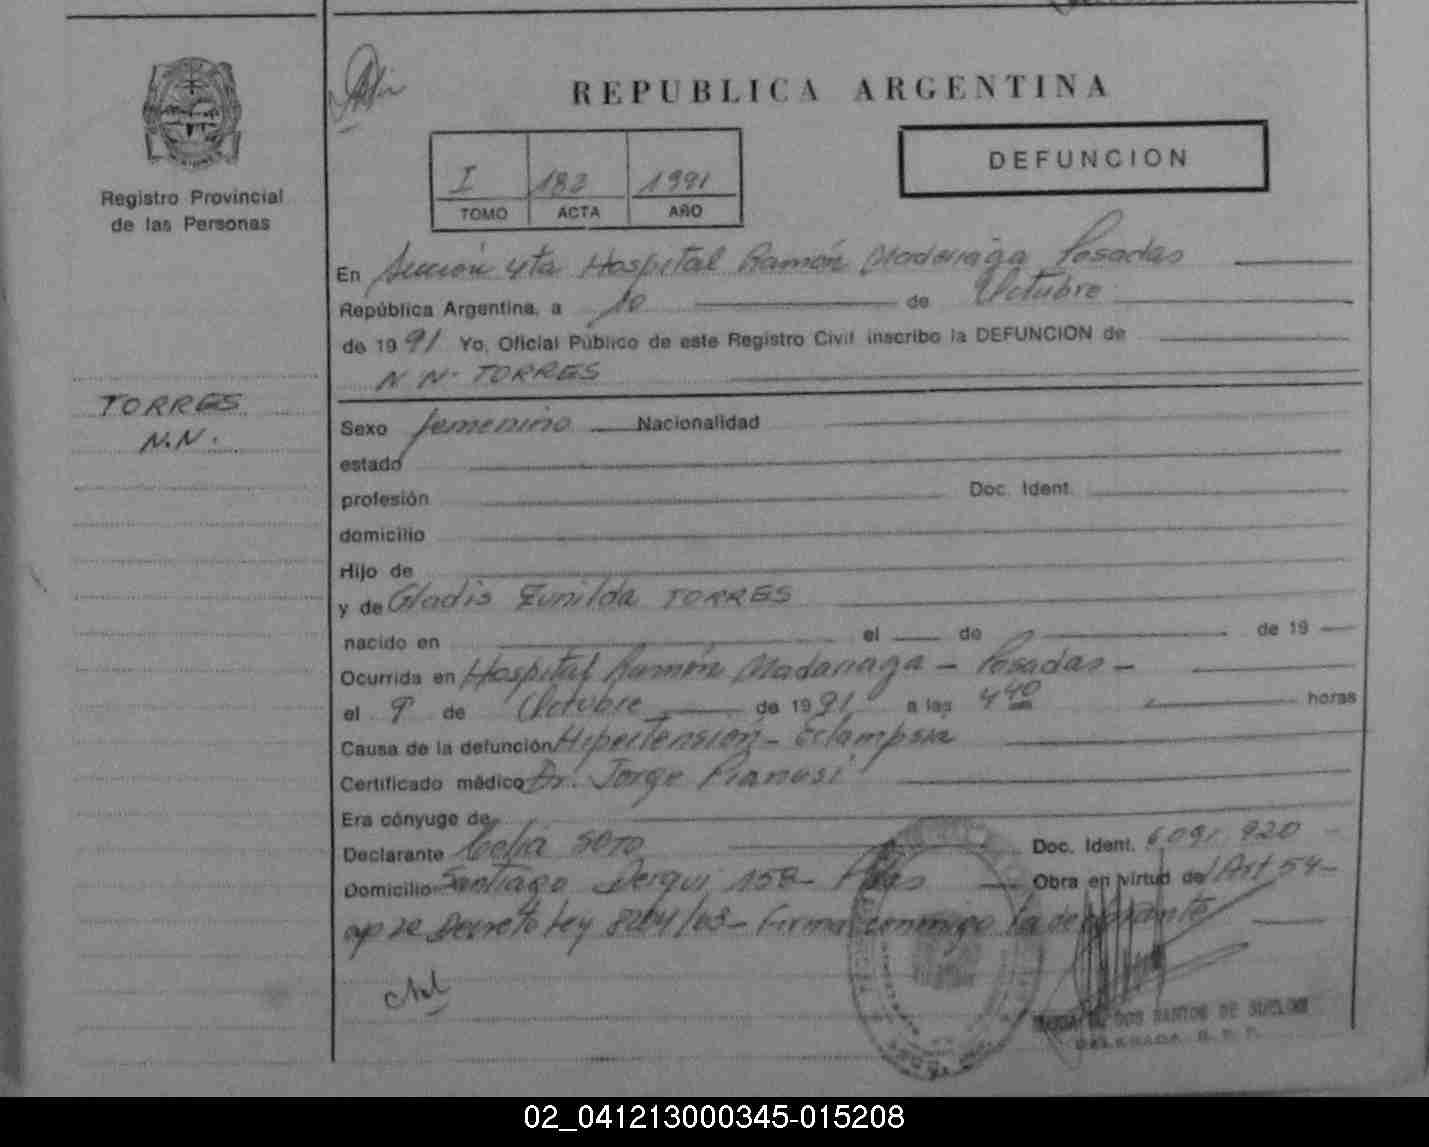 REPUBLICA ARGENTINA
Registro Provincial
de las Personas
I 182 1991
TOMO ACTA AÑO
DEFUNCION
En Sección 4ta Hospital Ramón Madariaga Posadas
República Argentina, a 10 de Octubre
de 1991 Yo, Oficial Público de este Registro Civil inscribo la DEFUNCION de
N N. TORRES
TORRES
N.N.
Sexo femenino Nacionalidad
estado
profesión Doc. Ident.
domicilio
Hijo de
y de Gladis Zunilda TORRES
nacido en el de de 19
Ocurrida en Hospital Ramón Madariaga - Posadas -
el 9 de Octubre de 1991 a las 4 40 horas
Causa de la defunción Hipertensión - Eclampsia
Certificado médico Dr. Jorge
Era cónyuge de
Declarante Celia SOTO Doc. Ident. 6091.920
Domicilio Santiago Derqui 158 - Obra en virtud del Art 54-
Decreto Ley 8204/63 - Firma conmigo la declarante
DOS SANTOS DE
DELEGADA R. P. P.
02_041213000345-015208